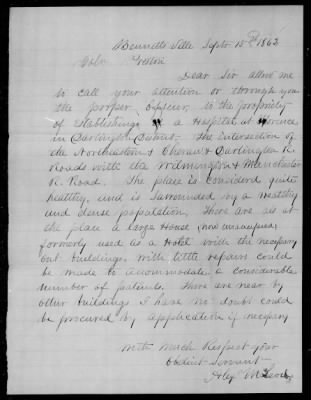 Bennettsville Septr 15th 1862
Colo Preston
Dear Sir allow me
to call your attention or through you
the proper officer, to the propriety
of Establishing a Hospital at Florence
in Darlington District. The intersection of
the Northeastern & Cheraw & Darlington R.
Roads with the Wilmington & Manchester
R. Road. The place is considerd quite
healthy, and is surrounded by a healthy
and dense population, There are as at
the place a large House, now unoccupied,
formerly used as a Hotel with the necessary
out buildings, with little repairs could
be made to accommodate a considerable
number of patients. There are near by
other buildings I have no doubt could
be procured by application if necessary
With much Respect your
Obedient Servant
Alex McLeod